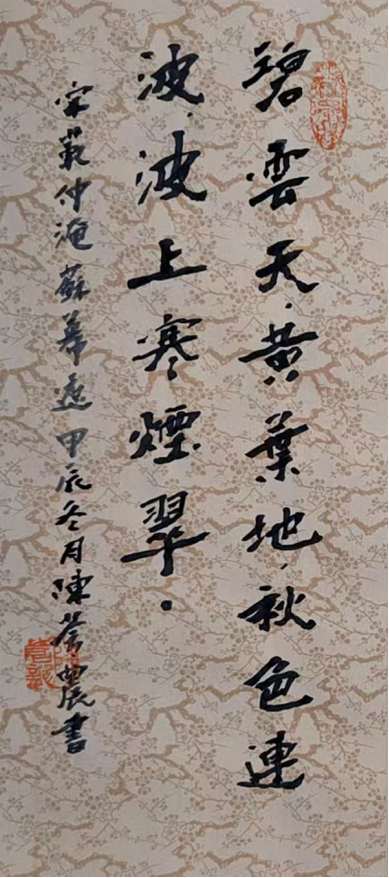 碧雲天，黃葉地，秋色連
波，波上寒煙翠。
宋范仲淹蘇幕遮甲辰冬月陳農書